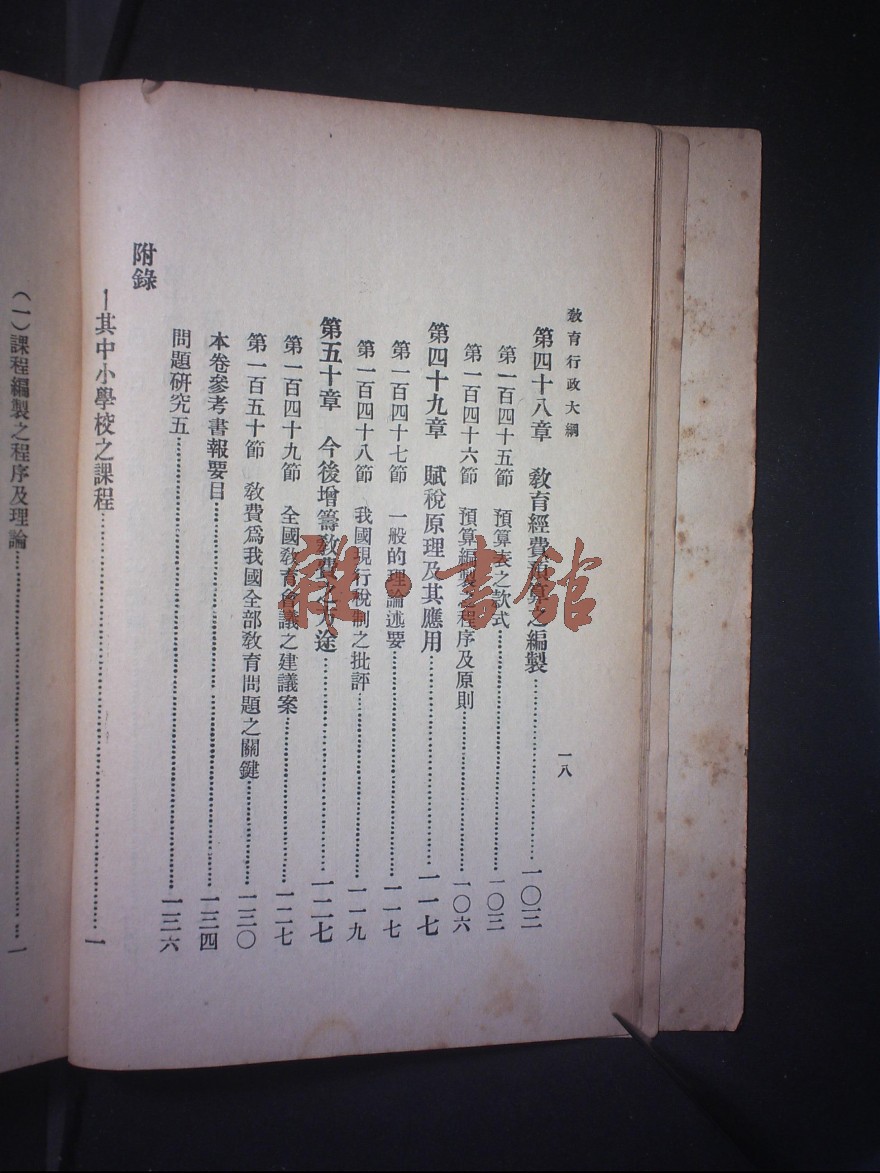 教育行政大綱
一八
第四十八章　教育經費預算之編製……一〇三
第一百四十五節　預算表之款式……一〇三
第一百四十六節　預算編製之程序及原則……一〇六
第四十九章　賦稅原理及其應用……一一七
第一百四十七節　一般的理論述要……一一七
第一百四十八節　我國現行稅制之批評……一一九
第五十章　今後增籌教費之方途……一二七
第一百四十九節　全國教育會議之建議案……一二七
第一百五十節　教費爲我國全部教育問題之關鍵……一三〇
本卷參考書報要目……一三四
問題研究五……一三六
附錄
其中小學校之課程……一
(一)課程編製之程序及理論……一
雜·書館